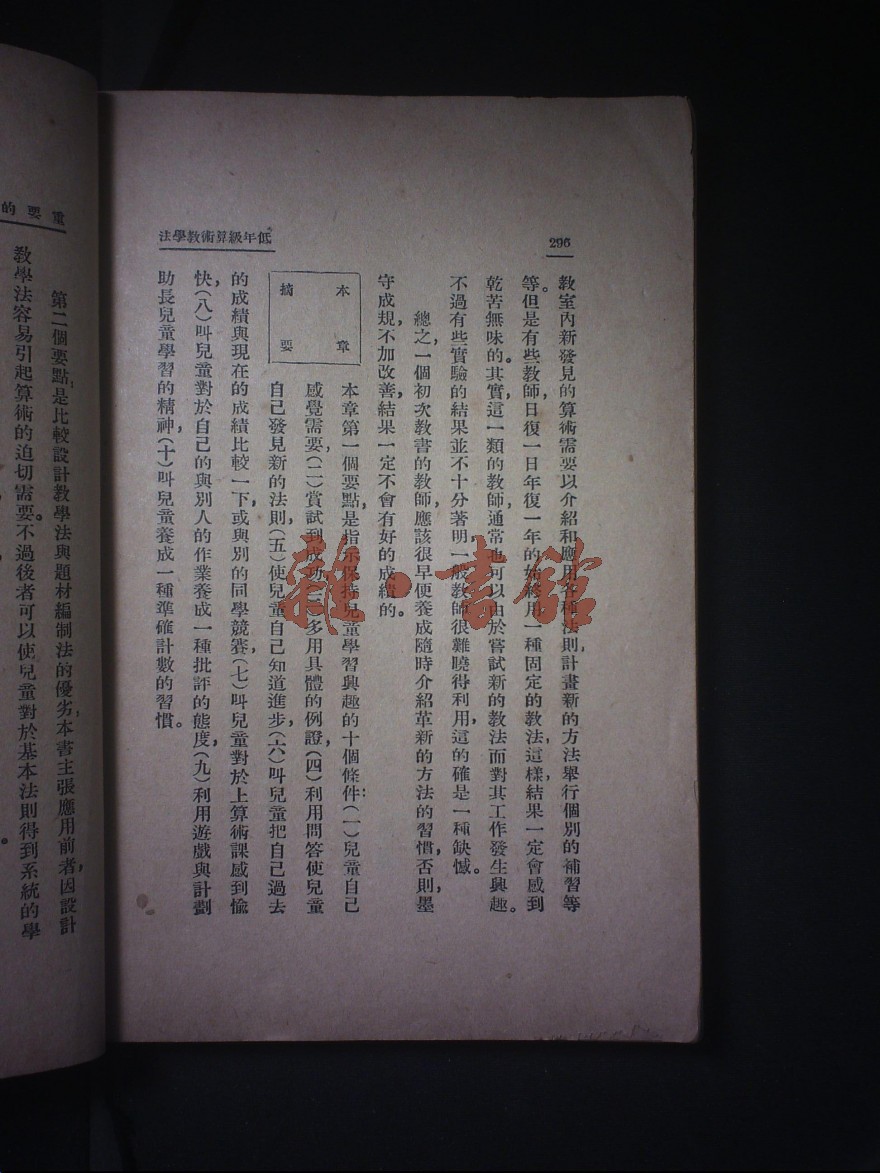 296
低年級算術教學法
教室內新發見的算術需要以介紹和應用各種法則，計畫新的方法舉行個別的補習等
等。但是有些教師，日復一日年復一年的始終用一種固定的教法，這樣，結果一定會感到
乾苦無味的。其實，這一類的教師，通常也可以由於嘗試新的教法而對其工作發生興趣。
不過有些實驗的結果並不十分著明，一般教師很難曉得利用，這的確是一種缺憾。
總之，一個初次教書的教師，應該很早便養成隨時介紹革新的方法的習慣，否則，墨
守成規，不加改善，結果一定不會有好的成績的。
本章
摘要
本章第一個要點，是指示保持兒童學習興趣的十個條件：（一）兒童自己
感覺需要，（二）嘗試到成功，（三）多用具體的例證，（四）利用問答使兒童
自己發見新的法則，（五）使兒童自己知道進步，（六）叫兒童把自己過去
的成績與現在的成績比較一下，或與別的同學競賽，（七）叫兒童對於上算術課感到愉
快，（八）叫兒童對於自己的與別人的作業養成一種批評的態度，（九）利用遊戲與計劃
助長兒童學習的精神，（十）叫兒童養成一種準確計數的習慣。
重要的
第二個要點，是比較設計教學法與題材編制法的優劣，本書主張應用前者，因設計
教學法容易引起算術的迫切需要。不過後者可以使兒童對於基本法則得到系統的學
雜·書館